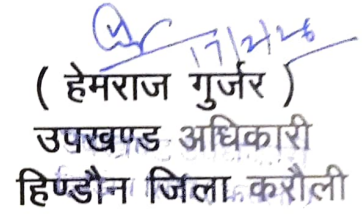 17/2/26
( हेमराज गुर्जर )
उपखण्ड अधिकारी
हिण्डौन जिला करौली